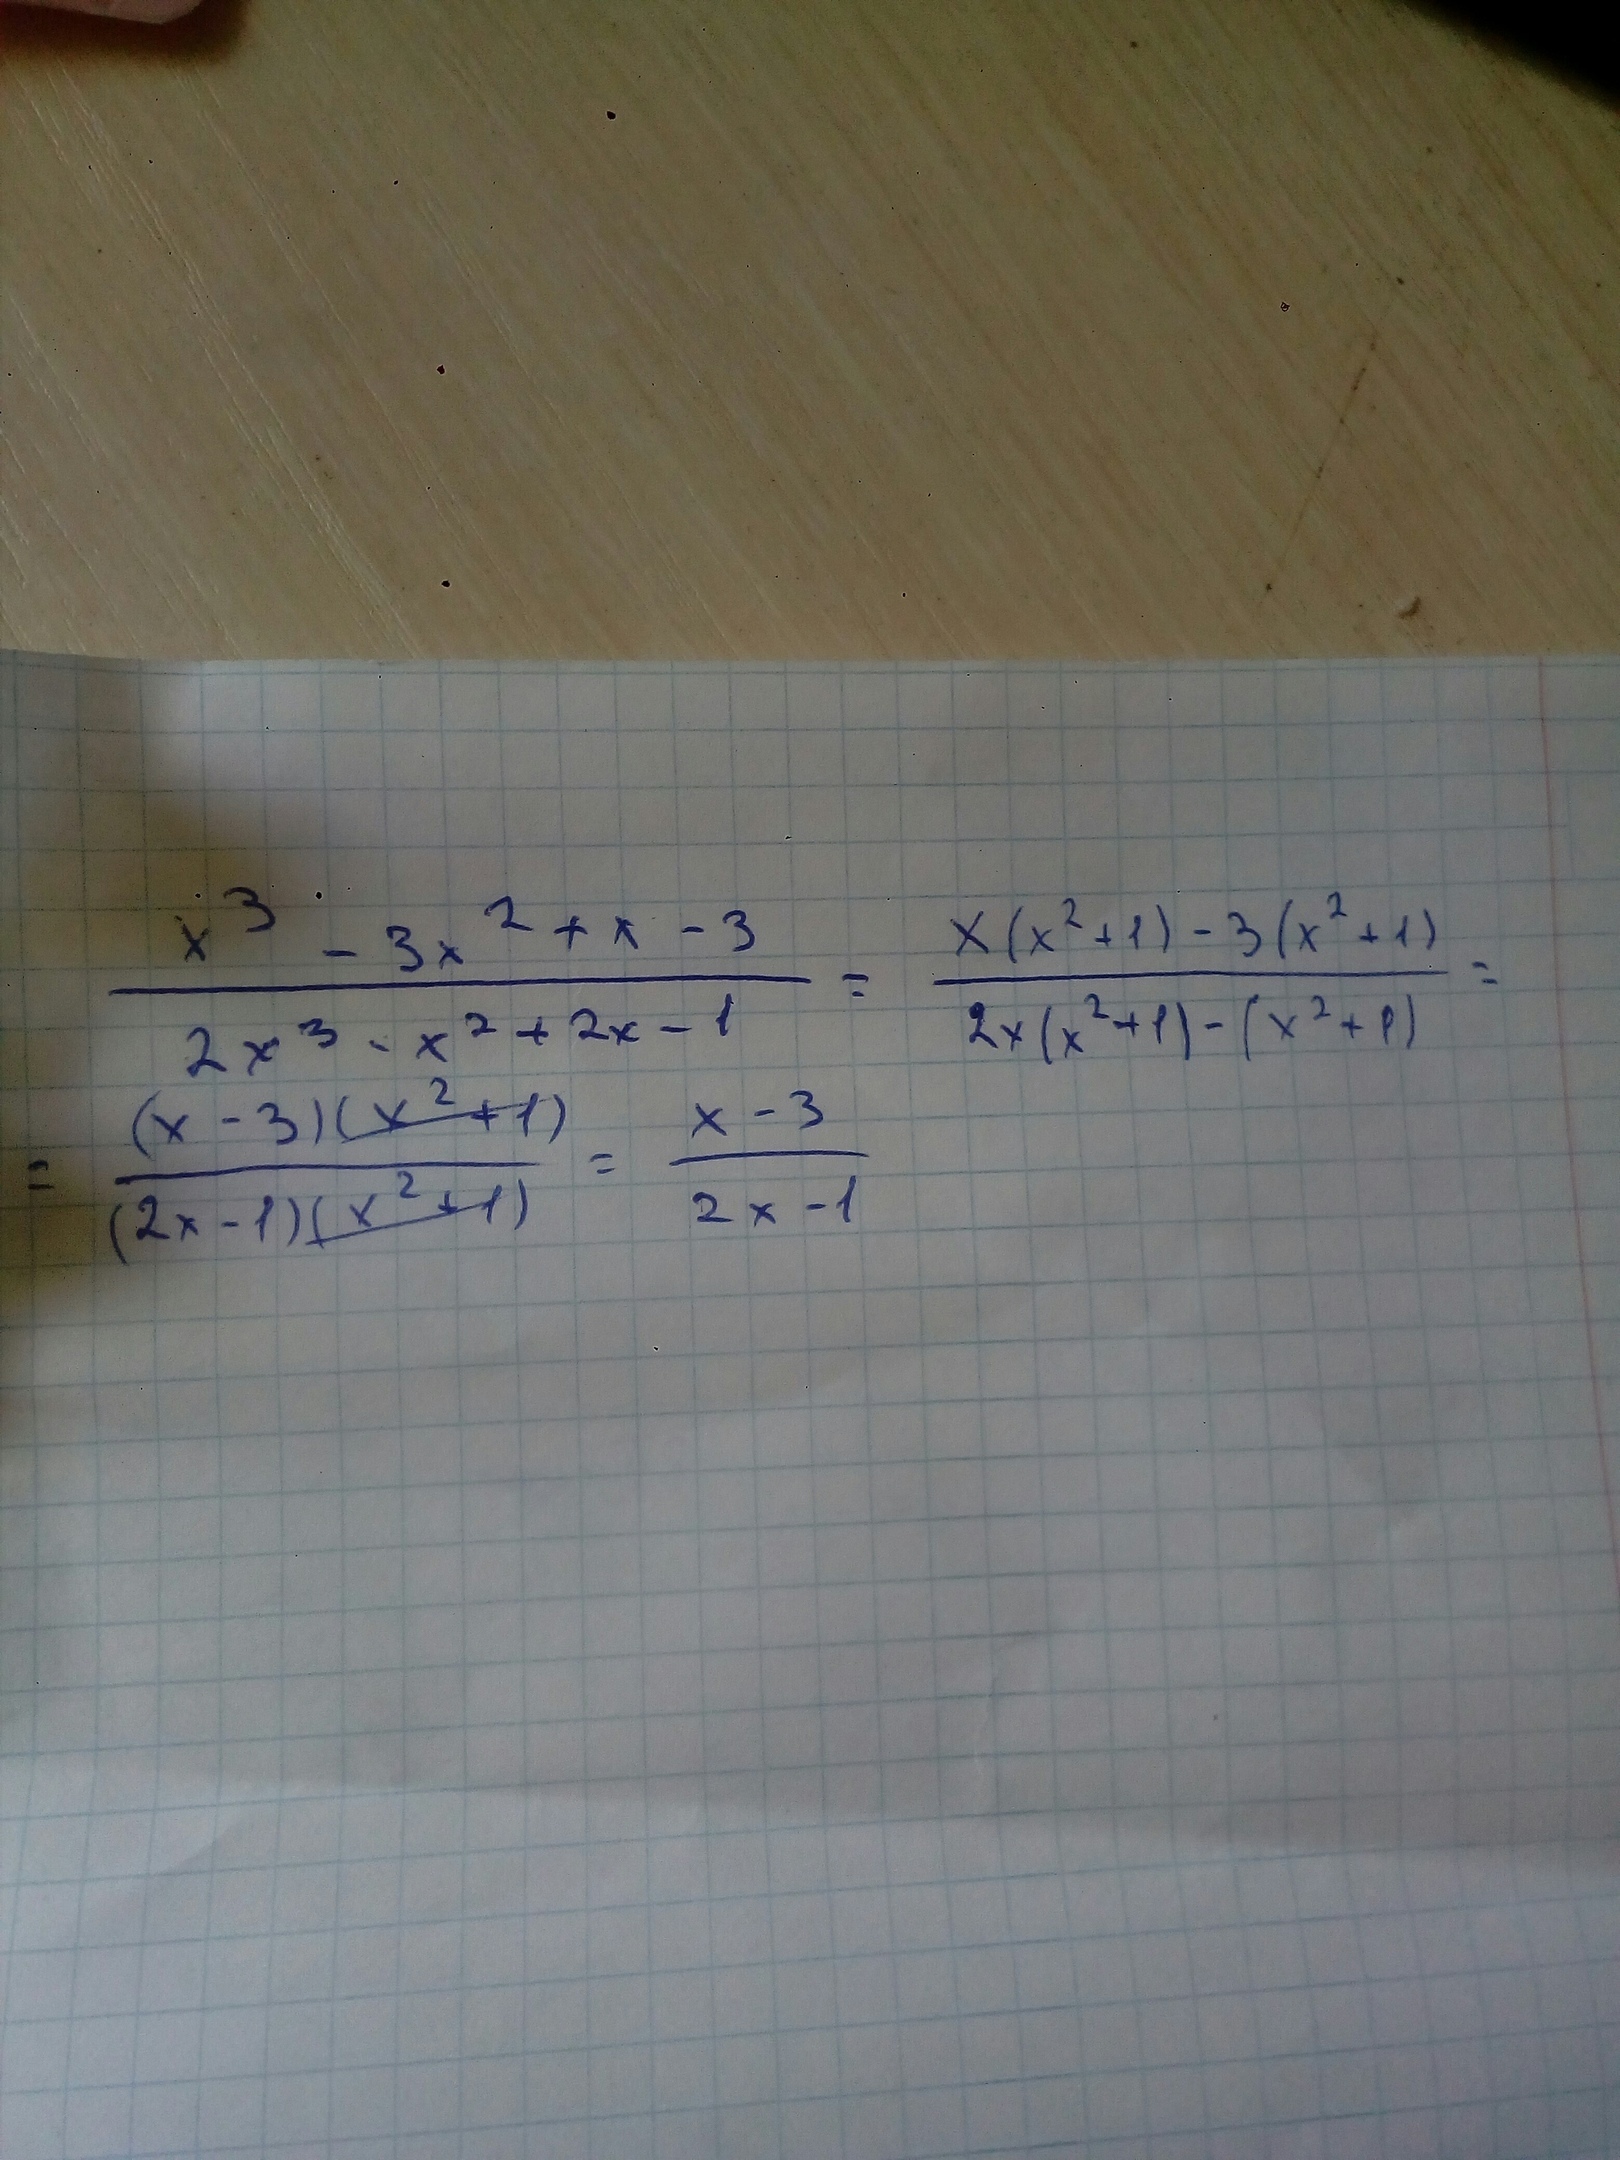 x³ - 3x² + x - 3 / 2x³ - x² + 2x - 1 = x(x²+1) - 3(x²+1) / 2x(x²+1) - (x²+1) =
= (x - 3)(x²+1) / (2x - 1)(x²+1) = x - 3 / 2x - 1